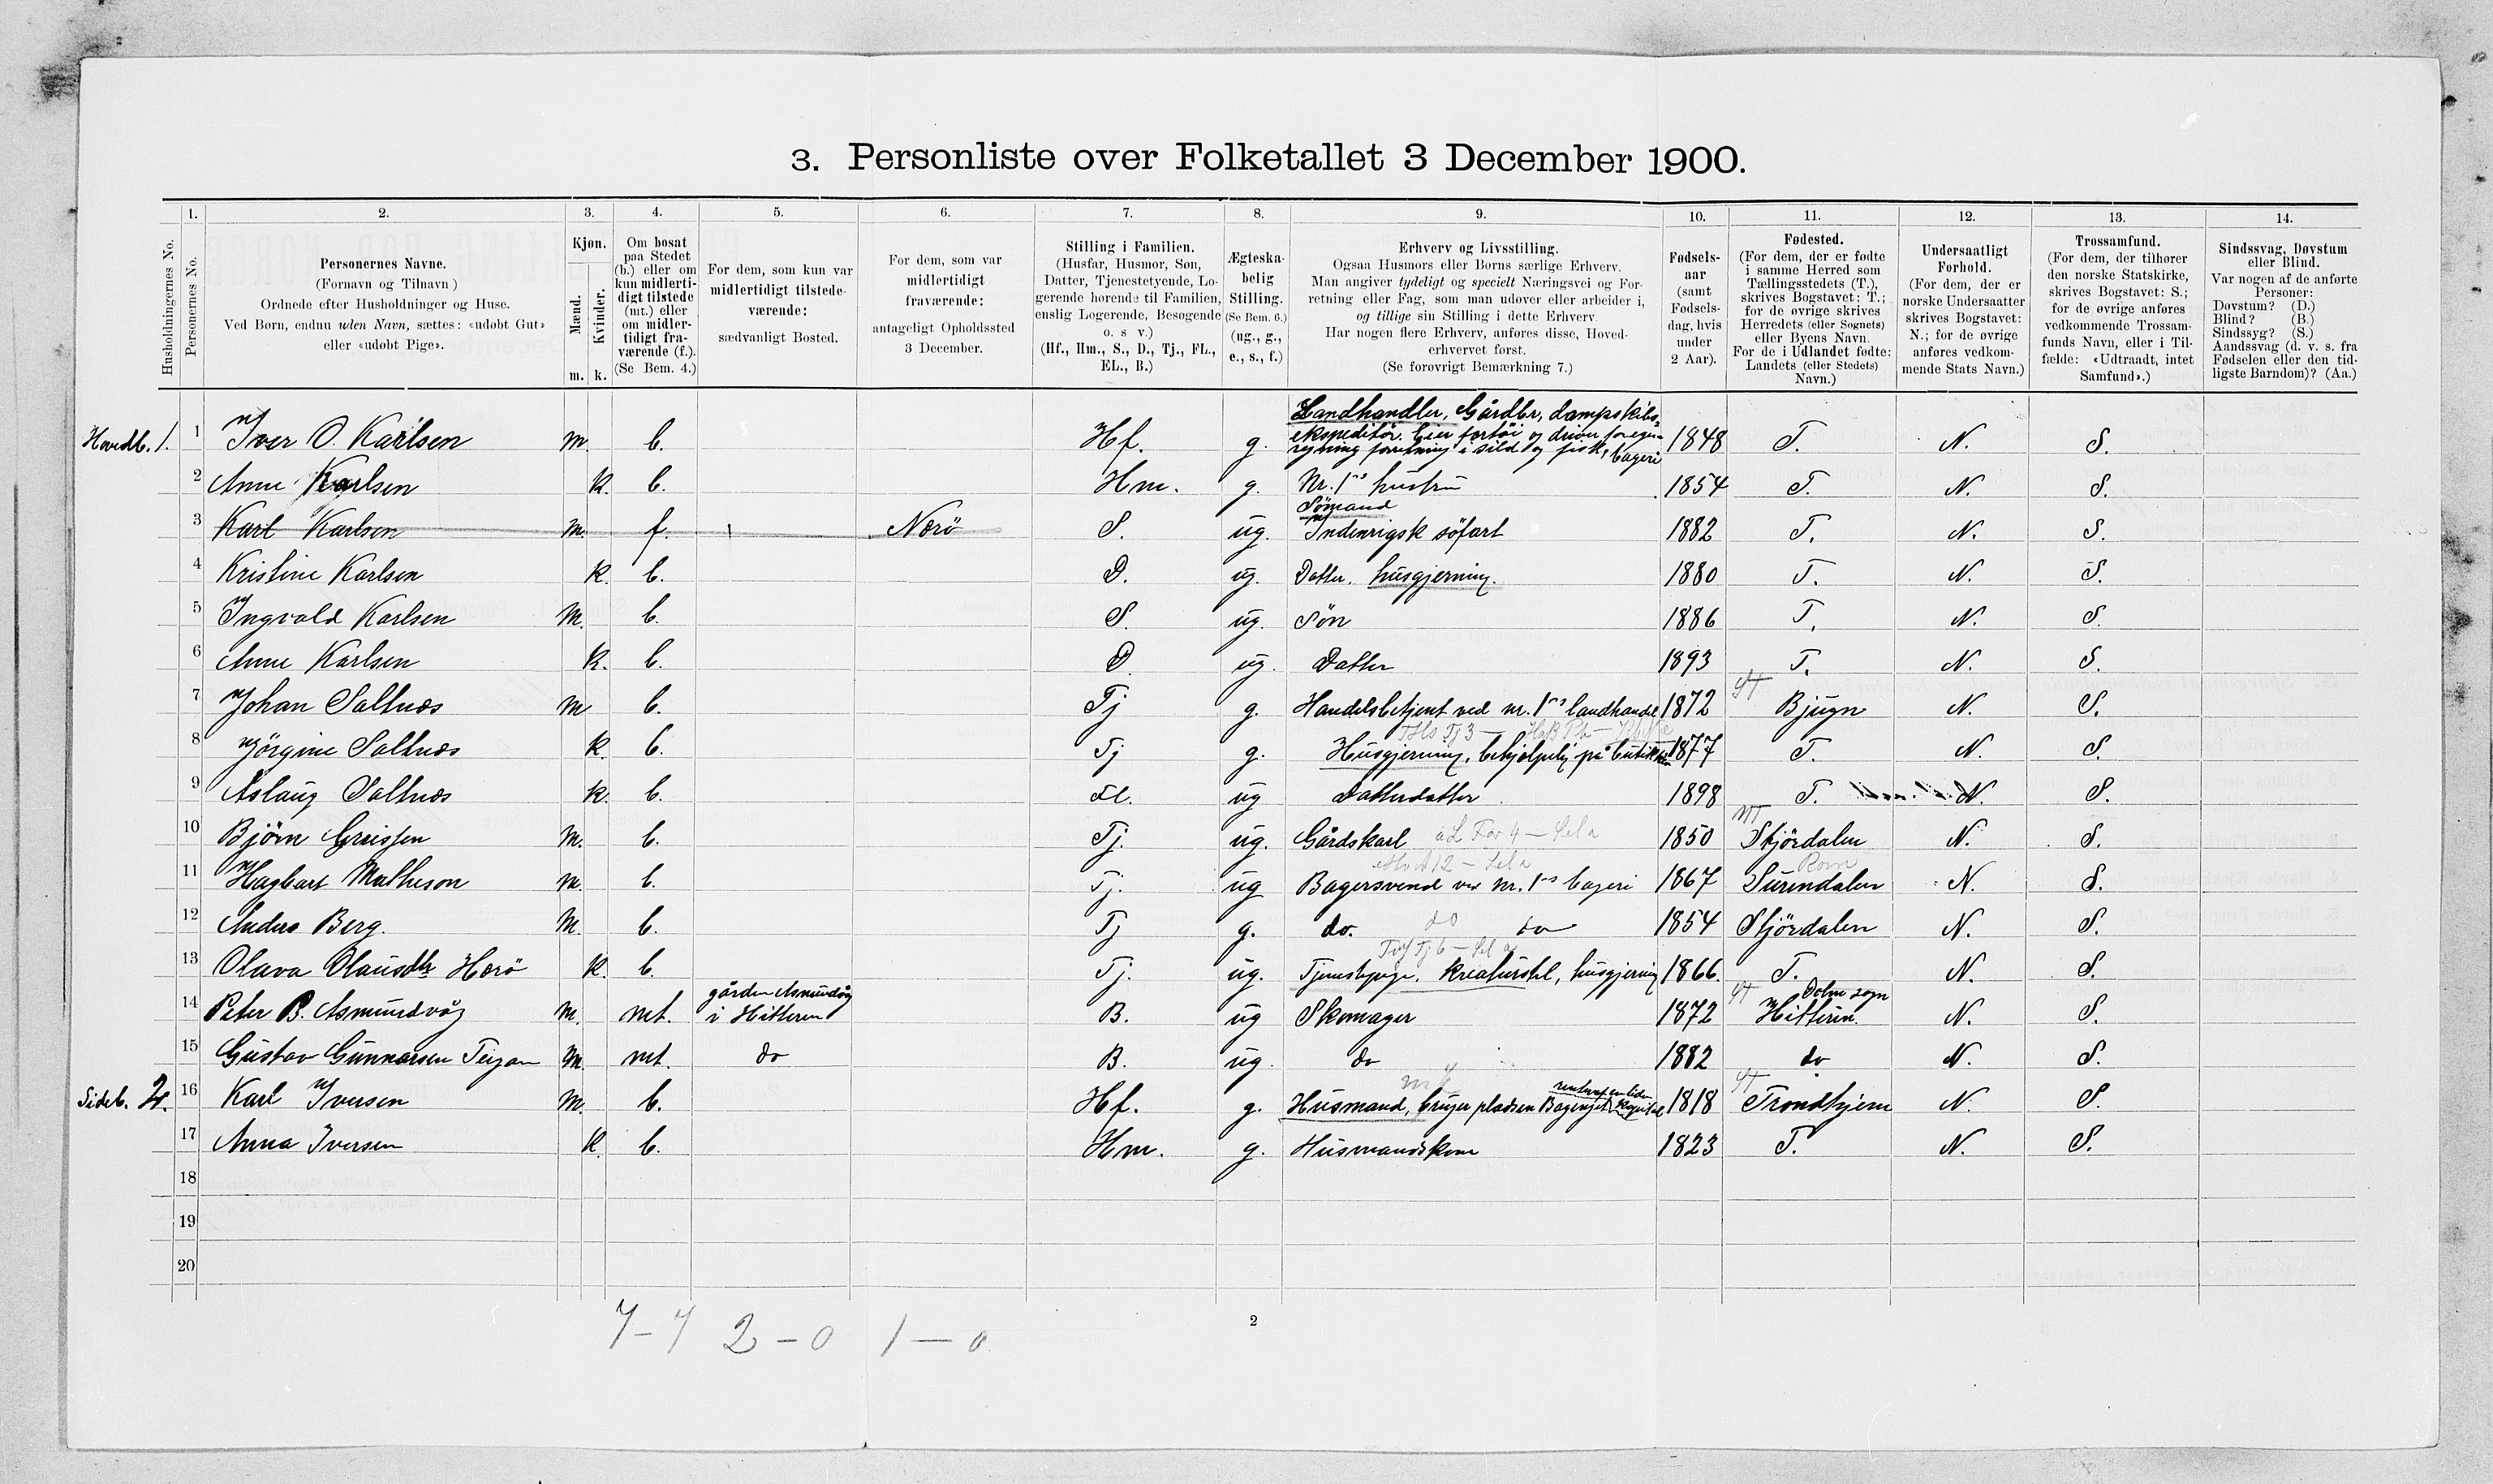 3. Personliste over Folketallet 3 December 1900.
1. 2. 3. 4. 5. 6. 7. 8. 9. 10. 11. 12. 13. 14.
Husholdningernes No.
Personernes No.
Personernes Navne.
(Fornavn og Tilnavn)
Ordnede efter Husholdninger og Huse.
Ved Børn, endnu uden Navn, sættes: «udøbt Gut»
eller «udøbt Pige».
Kjøn.
Mænd.
Kvinder.
m. k.
Om bosat
paa Stedet
(b.) eller om
kun midlerti-
digt tilstede
(mt.) eller
om midler-
tidigt fra-
værende (f.).
(Se Bem. 4.)
For dem, som kun var
midlertidigt tilstede-
værende:
sædvanligt Bosted.
For dem, som var
midlertidigt
fraværende:
antageligt Opholdssted
3 December.
Stilling i Familien.
(Husfar, Husmor, Søn,
Datter, Tjenestetyende, Lo-
gerende hørende til Familien,
enslig Logerende, Besøgende
o. s v.)
(Hf., Hm., S., D., Tj., FL.,
EL., B.)
Ægteska-
belig
Stilling.
(Se Bem. 6.)
(ug., g.,
e., s., f.)
Erhverv og Livsstilling.
Ogsaa Husmors eller Børns særlige Erhverv.
Man angiver tydeligt og specielt Næringsvei og For-
retning eller Fag, som man udøver eller arbeider i,
og tillige sin Stilling i dette Erhverv.
Har nogen flere Erhverv, anføres disse, Hoved-
erhvervet først.
(Se forøvrigt Bemærkning 7.)
Fødsels-
aar
(samt
Fødsels-
dag, hvis
under
2 Aar).
Fødested.
(For dem, der er fødte
i samme Herred som
Tællingsstedets (T.),
skrives Bogstavet: T.;
for de øvrige skrives
Herredets (eller Sognets)
eller Byens Navn.
For de i Udlandet fødte:
Landets (eller Stedets)
Navn.)
Undersaatligt
Forhold.
(For dem, der er
norske Undersaatter
skrives Bogstavet:
N.; for de øvrige
anføres vedkom-
mende Stats Navn.)
Trossamfund.
(For dem, der tilhører
den norske Statskirke,
skrives Bogstavet: S.;
for de øvrige anføres
vedkommende Trossam-
funds Navn, eller i Til-
fælde: «Udtraadt, intet
Samfund».)
Sindssvag, Døvstum
eller Blind.
Var nogen af de anførte
Personer:
Døvstum? (D.)
Blind? (B.)
Sindssyg? (S.)
Aandssvag (d. v. s. fra
Fødselen eller den tid-
ligste Barndom)? (Aa.)
Landhandler, Gårdbr, dampskibs-
ekspeditör. Eier fartöi og driver for egen
Hovedb. 1. 1 Iver O. Karlsen m. b. Hf. g. regning forretning i sild og fisk, bageri 1848 T. N. S.
2 Anne Karlsen k. b. Hm. g. Nr. 1ns hustru 1854 T. N. S.
Sömand
3 Karl Karlsen m. f. Nærö S. ug. Indenrigsk söfart 1882 T. N. S.
4 Kristine Karlsen k. b. D. ug. Datter. husgjerning. 1880 T. N. S.
5 Ingvald Karlsen m. b. S. ug. Sön 1886 T. N. S.
6 Anne Karlsen k. b. D ug. Datter 1893 T. N. S.
7 Johan Saltnes m b. Tj g. Handelsbetjent ved nr. 1ns landhandel 1872 Bjugn N. S.
8 Jörgine Saltnes k. b. Tj g. Husgjerning, behjelpelig på butikken 1877 T. N. S.
9 Aslaug Saltnes k. b. Fl. ug Datterdatter 1898 T. N. S.
10 Björn m. b. Tj. ug. Gårdskarl 1850 Stjördalen N. S.
11 Hagbart Matheson m. b. Tj. ug Bagersvend ved nr. 1ns bageri 1867 Surendalen N. S.
12 Anders Berg. m. b. Tj g. do. do 1854 Stjördalen N. S.
13 Olava Olausdtr Hærö k. b. Tj. ug. Tjenestepige, kreaturstel, husgjerning 1866. T. N. S.
gården Asmundvåg Dolm sogn
14 Peter B. Asmundvåg m. mt. i Hitteren B. ug Skomager 1872 Hitteren. N. S.
15 Gustav Gunnarsen Teigan m. mt. do B. ug. do 1882 do N. S.
renter af en liden
Sideb. 2. 16 Karl Iversen m. b. Hf. g. Husmand, bruger pladsen kapital 1818 Trondhjem N. S.
17 Anna Iversen k. b. Hm. g. Husmandskone 1823 T. N. S.
18
19
20
7-7 2-0 1-0
2